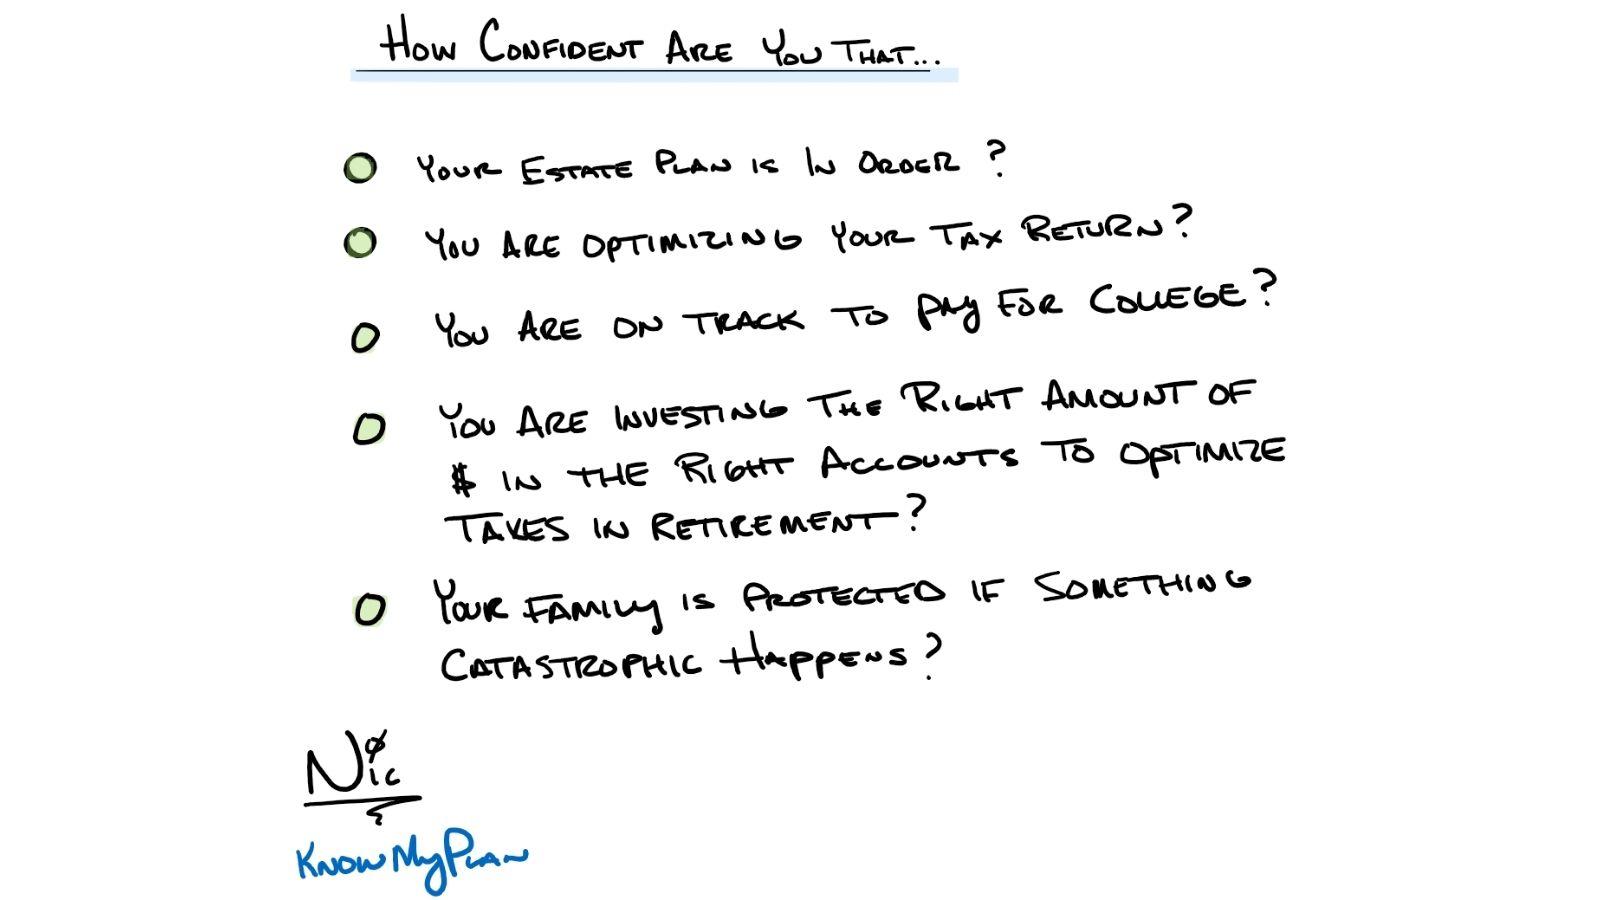 How Confident Are You That...
Your Estate Plan is In Order?
You Are Optimizing Your Tax Return?
You Are on Track to Pay For College?
You Are Investing The Right Amount of
$ in the Right Accounts to Optimize
Taxes in Retirement?
Your Family is Protected if Something
Catastrophic Happens?
Nic
KnowMyPlan